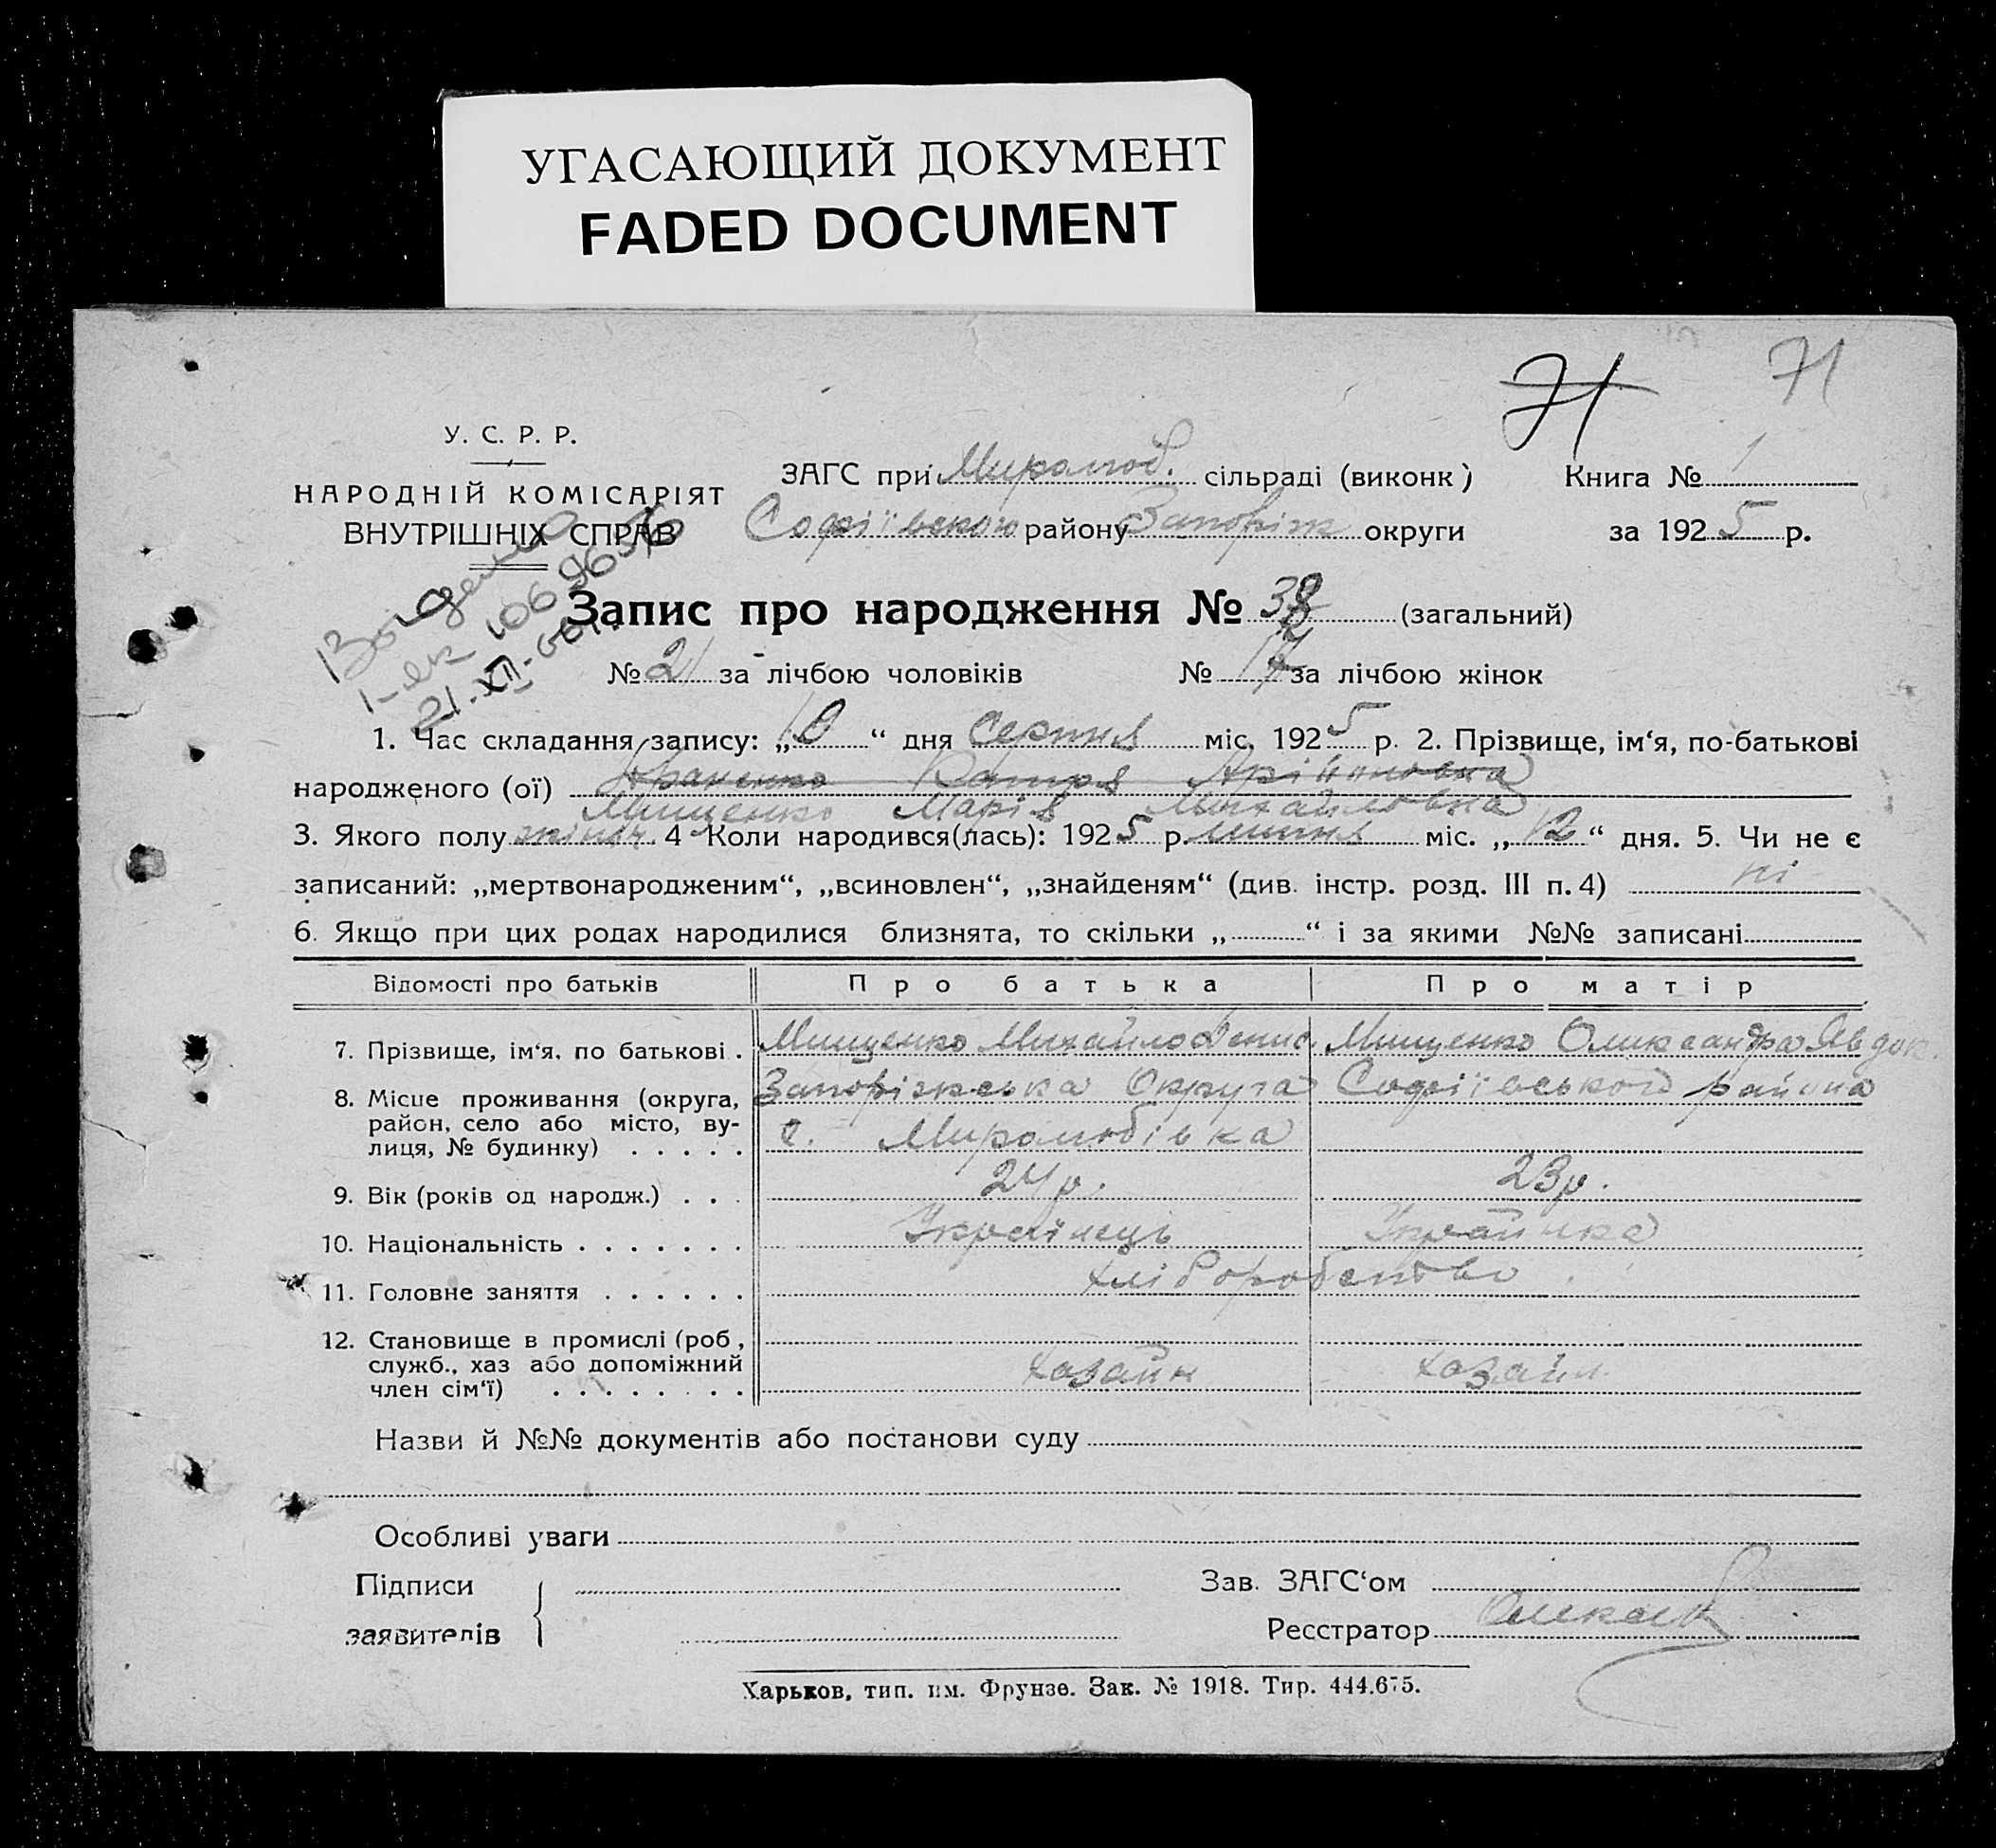 УГАСАЮЩИЙ ДОКУМЕНТ
FADED DOCUMENT
71 71
У. С. Р. Р.
НАРОДНІЙ КОМІСАРІЯТ
ВНУТРІШНІХ СПРАВ
ЗАГС при Миролюб. сільраді (виконк) Книга № 1
Софіївського району Запоріж округи за 1925 р.
Запис про народження № 38 (загальний)
№ 21 за лічбою чоловіків № 17 за лічбою жінок
21-XII-
1. Час складання запису: „10“ дня Серпня міс. 1925 р. 2. Прізвище, ім‘я, по-батькові
народженого (ої)
Мищенко Марія Михайловна
3. Якого полу жіноч. 4 Коли народився(лась): 1925 р. липня міс. „12“ дня. 5. Чи не є
записаний: „мертвонародженим“, „всиновлен“, „знайденям“ (див. інстр. розд. III п. 4) ні
6. Якщо при цих родах народилися близнята, то скільки „ “ і за якими №№ записані
Відомості про батьків Про батька Про матір
7. Прізвище, ім‘я, по батькові . Мищенко Михайло Денис. Мищенко Олександра Явдок.
8. Місце проживання (округа, Запоріжська Округа Софіївського района
район, село або місто, ву-
лиця, № будинку) . . . . . с. Миролюбівка
9. Вік (років од народж.) . . . 24 р. 23 р.
10. Національність . . . . . . . Українець Українка
11. Головне заняття . . . . . . хліборобство
12. Становище в промислі (роб,
служб., хаз або допоміжний хозаїн хозаїн
член сім‘ї) . . . . . . . .
Назви й №№ документів або постанови суду
Особливі уваги
Підписи Зав. ЗАГС‘ом
заявителів Реєстратор
Харьков, тип. им. Фрунзе. Зак. № 1918. Тир. 444.675.